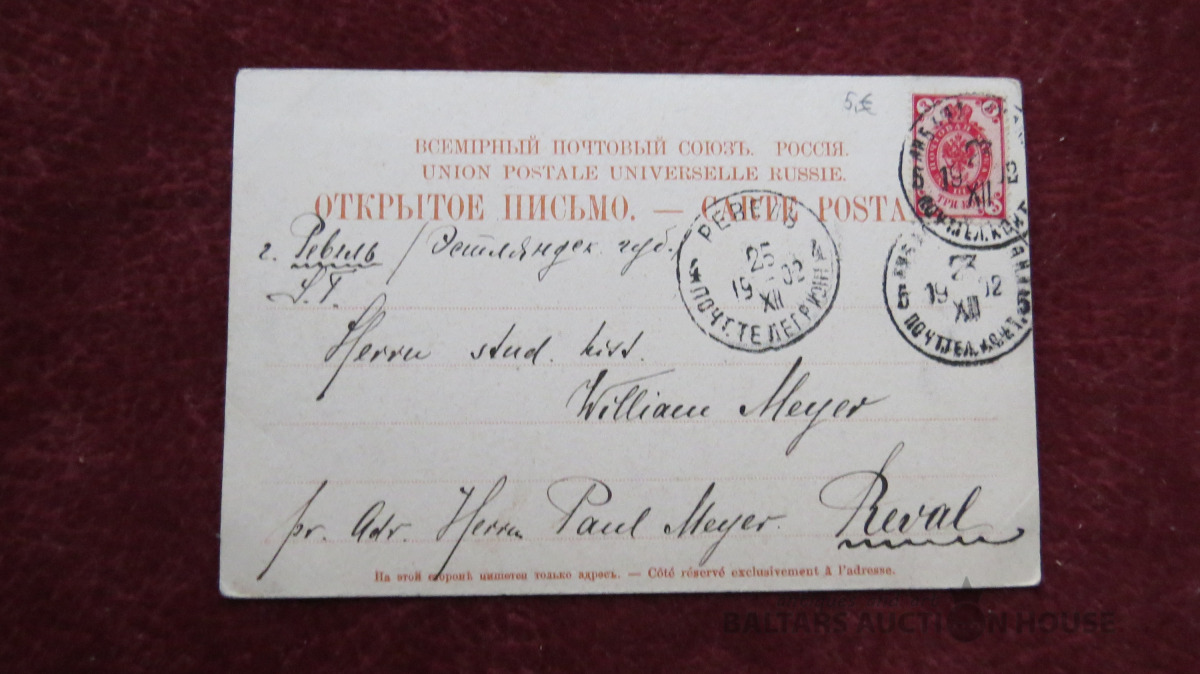 5 €
ВСЕМІРНЫЙ ПОЧТОВЫЙ СОЮЗЪ. РОССІЯ.
UNION POSTALE UNIVERSELLE RUSSIE.
ОТКРЫТОЕ ПИСЬМО. — CARTE POSTA
г. Ревель / Эстляндск. губ.
S. T.
РЕВЕЛЬ
25
19 02
XII
ПОЧТ.ТЕЛЕГР
23
19 02
XII
ПОЧТ.ТЕЛ.КОНТ.
Herrn stud. hist.
William Meyer
pr. Adr. Herrn Paul Meyer. Reval
На этой сторонѣ пишется только адресъ. — Côté réservé exclusivement à l'adresse.
BALTARS AUCTION HOUSE